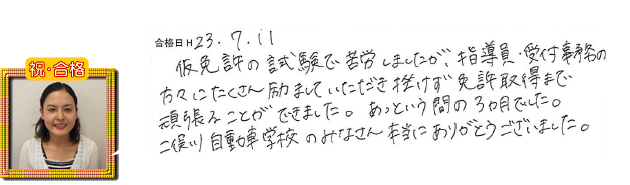 祝・合格
合格日 H 23.7.11
仮免許の試験で苦労しましたが、指導員・受付事務の
方々にたくさん励ましていただき挫けず免許取得まで
頑張ることができました。あっという間の3ヵ月でした。
二俣川自動車学校のみなさん本当にありがとうございました。